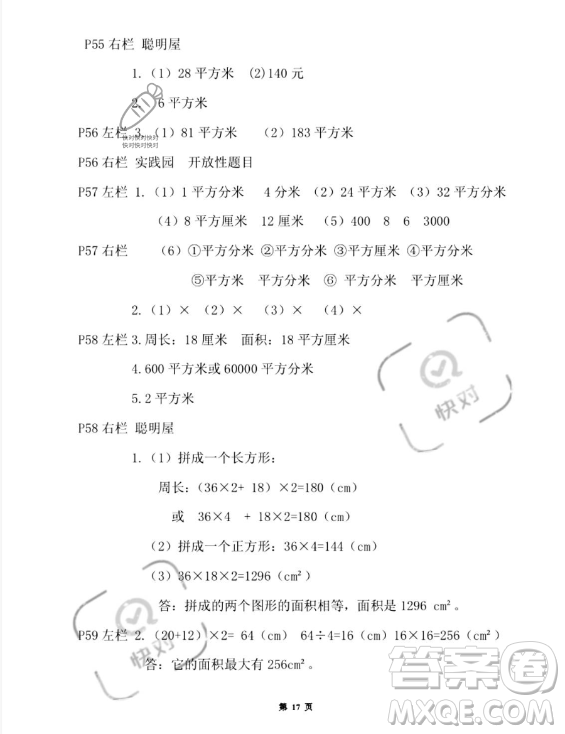 P55 右栏 聪明屋
1.（1）28 平方米 (2)140 元
2. 6 平方米
快对快对快对
快对快对快对
P56 左栏 3.（1）81 平方米 （2）183 平方米
P56 右栏 实践园 开放性题目
P57 左栏 1.（1）1 平方分米 4 分米 （2）24 平方米 （3）32 平方分米
（4）8 平方厘米 12 厘米 （5）400 8 6 3000
P57 右栏 （6）①平方分米 ②平方分米 ③平方厘米 ④平方分米
⑤平方米 平方米 ⑥ 平方分米 平方厘米
2.（1）× （2）× （3）× （4）×
P58 左栏 3.周长：18 厘米 面积：18 平方厘米
4.600 平方米或 60000 平方分米
5.2 平方米
快对
P58 右栏 聪明屋
1.（1）拼成一个长方形：
周长：（36×2+ 18）×2=180（cm）
或 36×4 + 18×2=180（cm）
（2）拼成一个正方形：36×4=144（cm）
（3）36×18×2=1296（cm²）
答：拼成的两个图形的面积相等，面积是 1296 cm²。
P59 左栏 2.（20+12）×2= 64（cm） 64÷4=16（cm）16×16=256（cm²）
答：它的面积最大有 256cm²。
快对
第 17 页
答案圈
MXQE.COM